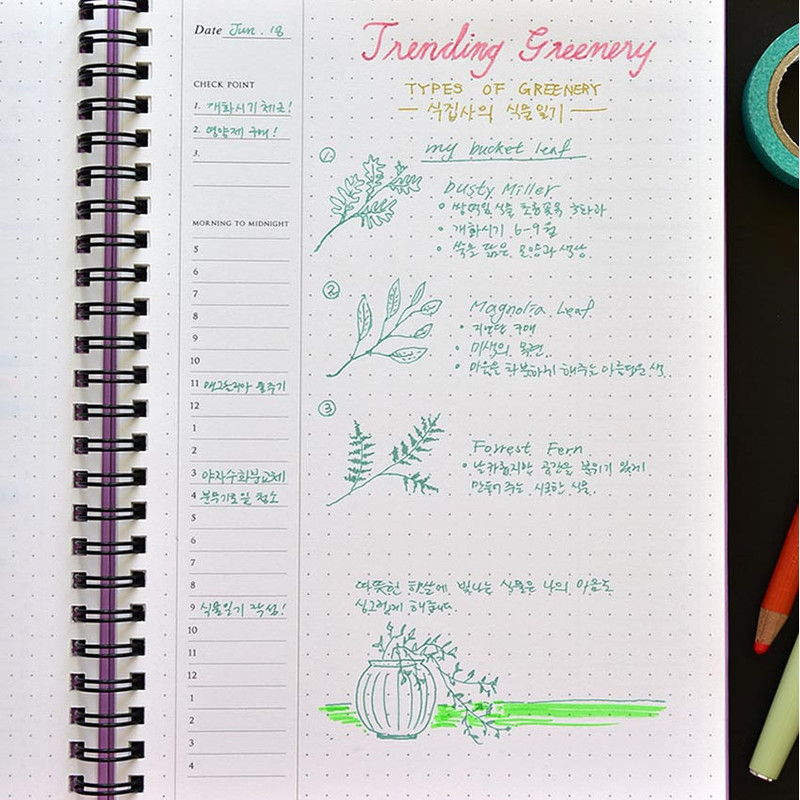 Date Jun. 18
CHECK POINT
1. 개화시기 체크!
2. 영양제 구매!
3.
MORNING TO MIDNIGHT
5
6
7
8
9
10
11 물주기
12
1
2
3 야자수화분교체
4 분무기로 잎 청소
5
6
7
8
9 식물일기 작성!
10
11
12
1
2
3
4
Trending Greenery
TYPES OF GREENERY
— 식집사의 식물일기 —
my bucket leaf
1.
Dusty Miller
쌍떡잎식물 초롱꽃목 국화과
개화시기 6-9월
쑥을 닮은 모양과 색상
2
Magnolia Leaf
구매
미색의 목련..
마음을 차분하게 해주는 아름다운 색.
3
Forrest Fern
날카롭지만 공간을 분위기 있게
만들어 주는 시크한 식물.
따뜻한 햇살에 빛나는 식물은 나의 마음도
싱그럽게 해준다.